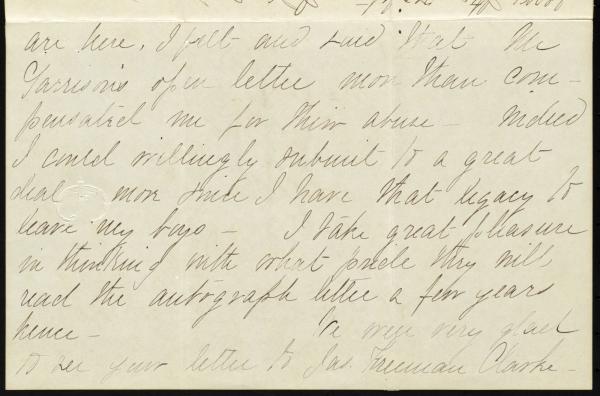 are here, I felt and said that Mr
Garrison's open letter more than com-
pensated me for their abuse - Indeed
I could willingly submit to a great
deal more since I have that legacy to
leave my boys - I take great pleasure
in thinking with what pride they will
read the autograph letter a few years
hence - We were very glad
to see your letter to Jas. Freeman Clarke -